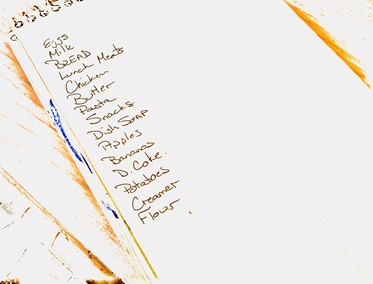 Eggs
Milk
BREAD
Lunch Meats
Chicken
Butter
Pasta
Snacks
Dish Soap
Apples
Bananas
D. Coke
Potatoes
Creamer
Flour